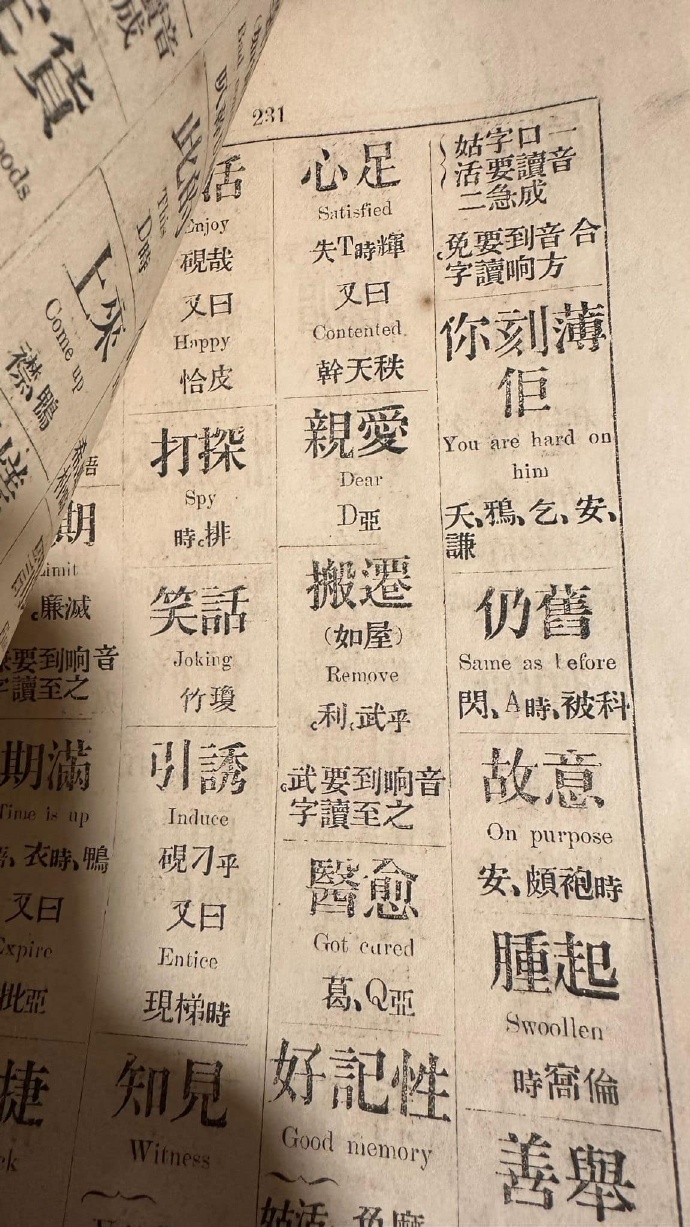 231
活
Enjoy
硯哉
又曰
Happy
恰皮
打探
Spy
時排
笑話
Joking
竹瓊
引誘
Induce
硯刁乎
又曰
Entice
現梯時
知見
Witness
心足
Satisfied
失T時輝
又曰
Contented
幹天秩
親愛
Dear
D亞
搬遷
(如屋)
Remove
利武乎
武字
要讀
到至
响之
音
醫愈
Got cured
葛、Q亞
好記性
Good memory
姑活
姑活二
字要急
口讀成
一音
免字
要讀
到响
音方
合
你刻薄
佢
You are hard on
him
夭、鴉、乞、安、
謙
仍舊
Same as before
閃、A時、被科
故意
On purpose
安、頗袍時
腫起
Swoollen
時窩倫
善舉
貨
oods
上來
Come up
襟鴨
期
imit
廉滅
要讀
到至
响之
音
期滿
Time is up
衣時、鴨
又曰
Expire
批亞
捷